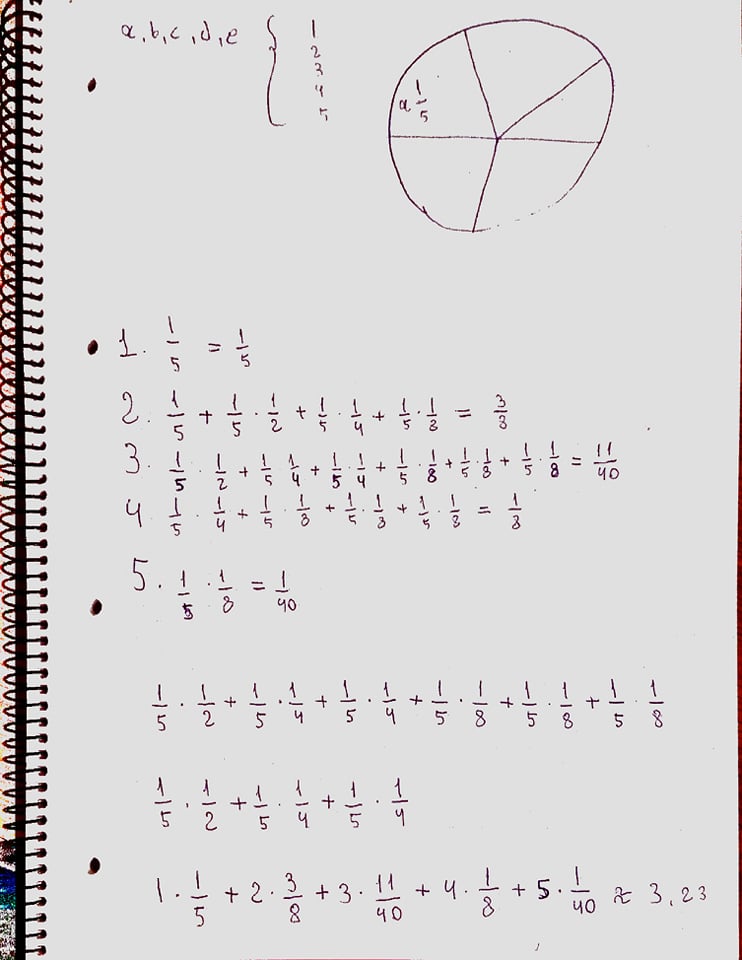 a,b,c,d,e { 1
2
3
4
5
a 1/5
1. 1/5 = 1/5
2. 1/5 + 1/5 · 1/2 + 1/5 · 1/4 + 1/5 · 1/8 = 3/8
3. 1/5 · 1/2 + 1/5 1/4 + 1/5 · 1/4 + 1/5 · 1/8 + 1/5 · 1/8 + 1/5 · 1/8 = 11/40
4 1/5 · 1/4 + 1/5 · 1/8 + 1/5 · 1/8 + 1/5 · 1/8 = 1/8
5. 1/5 · 1/8 = 1/40
1/5 · 1/2 + 1/5 · 1/4 + 1/5 · 1/4 + 1/5 · 1/8 + 1/5 · 1/8 + 1/5 · 1/8
1/5 · 1/2 + 1/5 · 1/4 + 1/5 · 1/4
1 · 1/5 + 2 · 3/8 + 3 · 11/40 + 4 · 1/8 + 5 · 1/40 ≈ 3,23